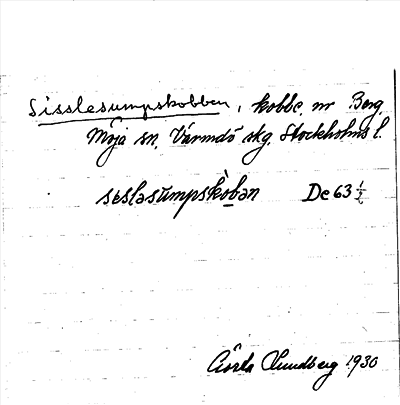 Sisslesumpskobben, kobbe nr Berg
Möja sn. Värmdö skg. Stockholms l.
sislasùmpskòban De 63 ½
Gösta Lundberg 1930